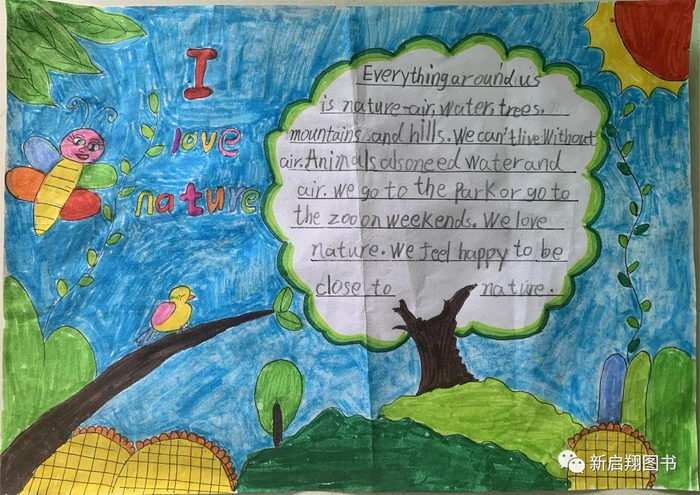 I
love
nature
Everything around us
is nature-air, water, trees,
mountains and hills. We can't live without
air. Animals also need water and
air. We go to the park or go to
the zoo on weekends. We love
nature. We feel happy to be
close to nature.
新启翔图书